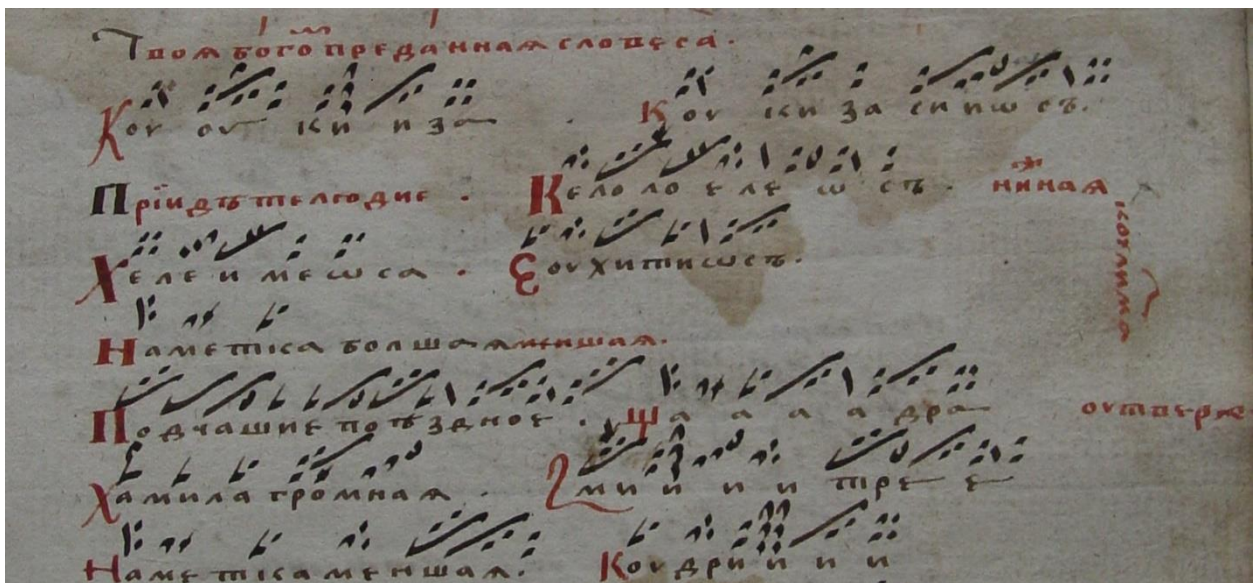 Твоя бого преданная словеса.
Коу оу ки и за . Коу ки за си и ѡ съ.
Прїидѣте людие . Ке ло ло е ле ѡ съ . нн҃ная
Хеле и ме ѡ са . Єоухитиѡсъ.
котлима
Наметка болшая меншая.
Подчашие поѣздное . Ша а а а дра оутверже
Хамила громная . Зми и и и тре е
Наметка меншая. Коудри и и